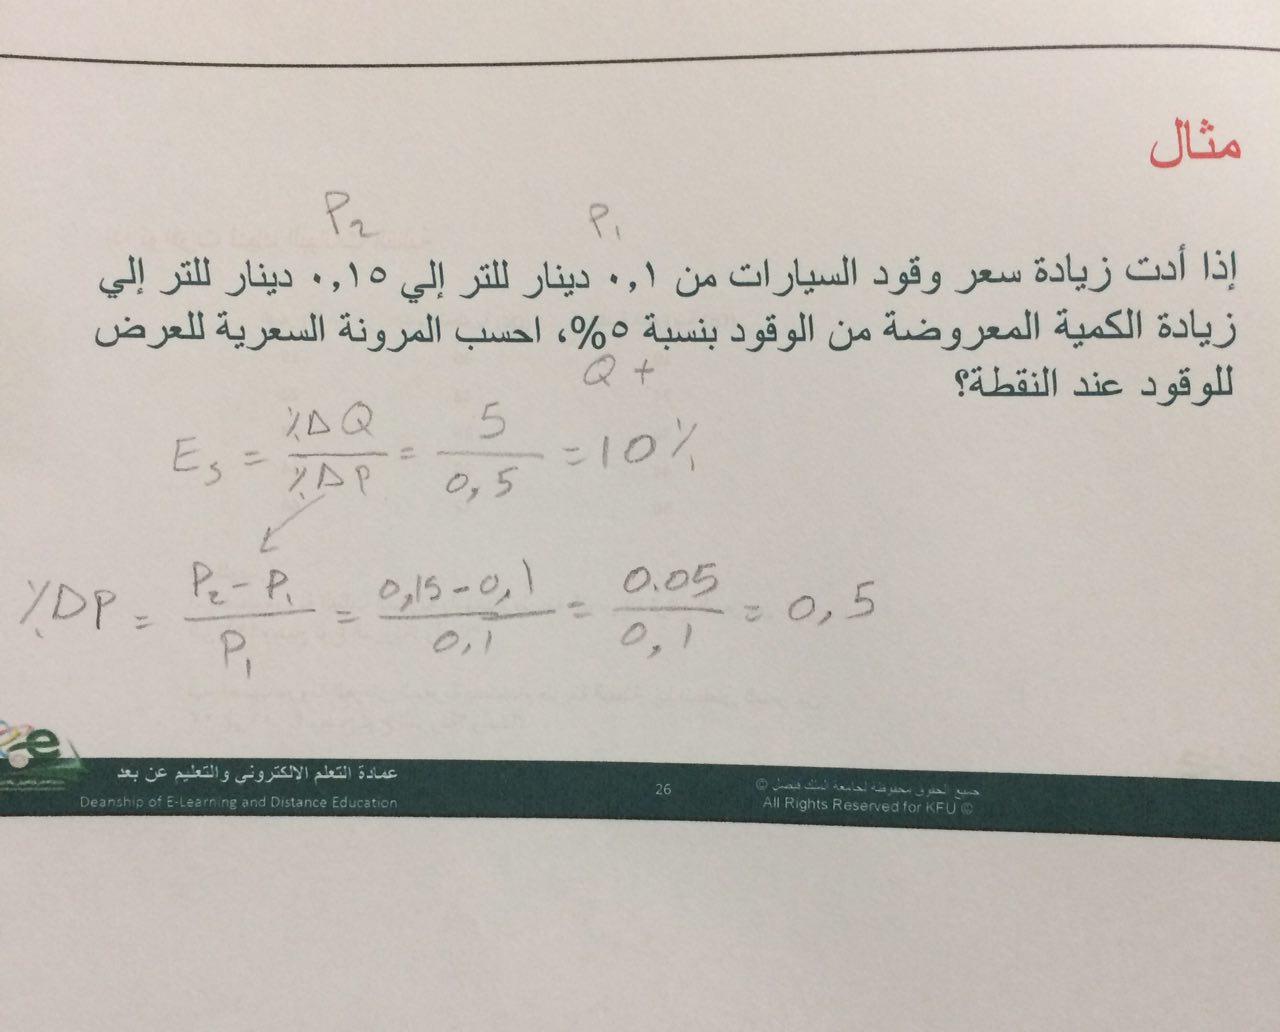 مثال
P2 P1
إذا أدت زيادة سعر وقود السيارات من ٠,١ دينار للتر إلي ٠,١٥ دينار للتر إلي
زيادة الكمية المعروضة من الوقود بنسبة ٥%، احسب المرونة السعرية للعرض
Q +
للوقود عند النقطة؟
Es = %ΔQ / %ΔP = 5 / 0,5 = 10%
%ΔP = P2 - P1 / P1 = 0,15 - 0,1 / 0,1 = 0.05 / 0,1 = 0,5
عمادة التعلم الالكتروني والتعليم عن بعد
Deanship of E-Learning and Distance Education
26
جميع الحقوق محفوظة لجامعة الملك فيصل ©
All Rights Reserved for KFU ©